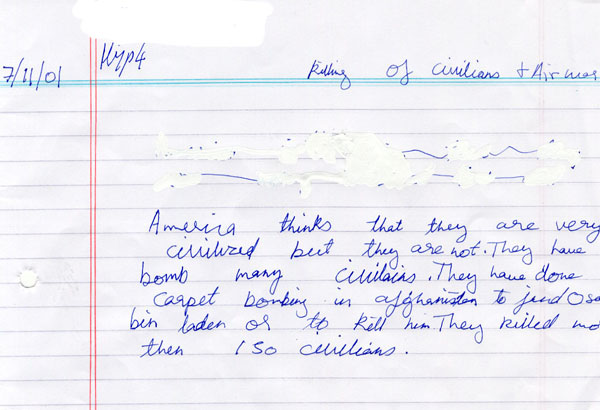 Hyp4
7/11/01 killing of civilians + Air
America thinks that they are very
civilized but they are not. They have
bomb many civilains. They have done
carpet bombing in afghanistan to find Osa
bin laden or to kill him. They killed mo
then 150 civilians.